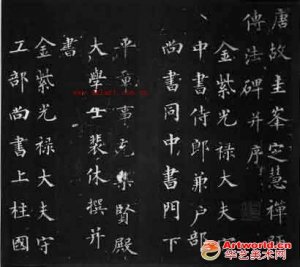 唐故圭峯定慧禪
傳法碑并序
金紫光祿大夫
中書侍郎兼户部
尚書同中書門下
平章事充集賢殿
大學士裴休撰并
書
金紫光禄大夫守
工部尚書上柱國
华艺美术网